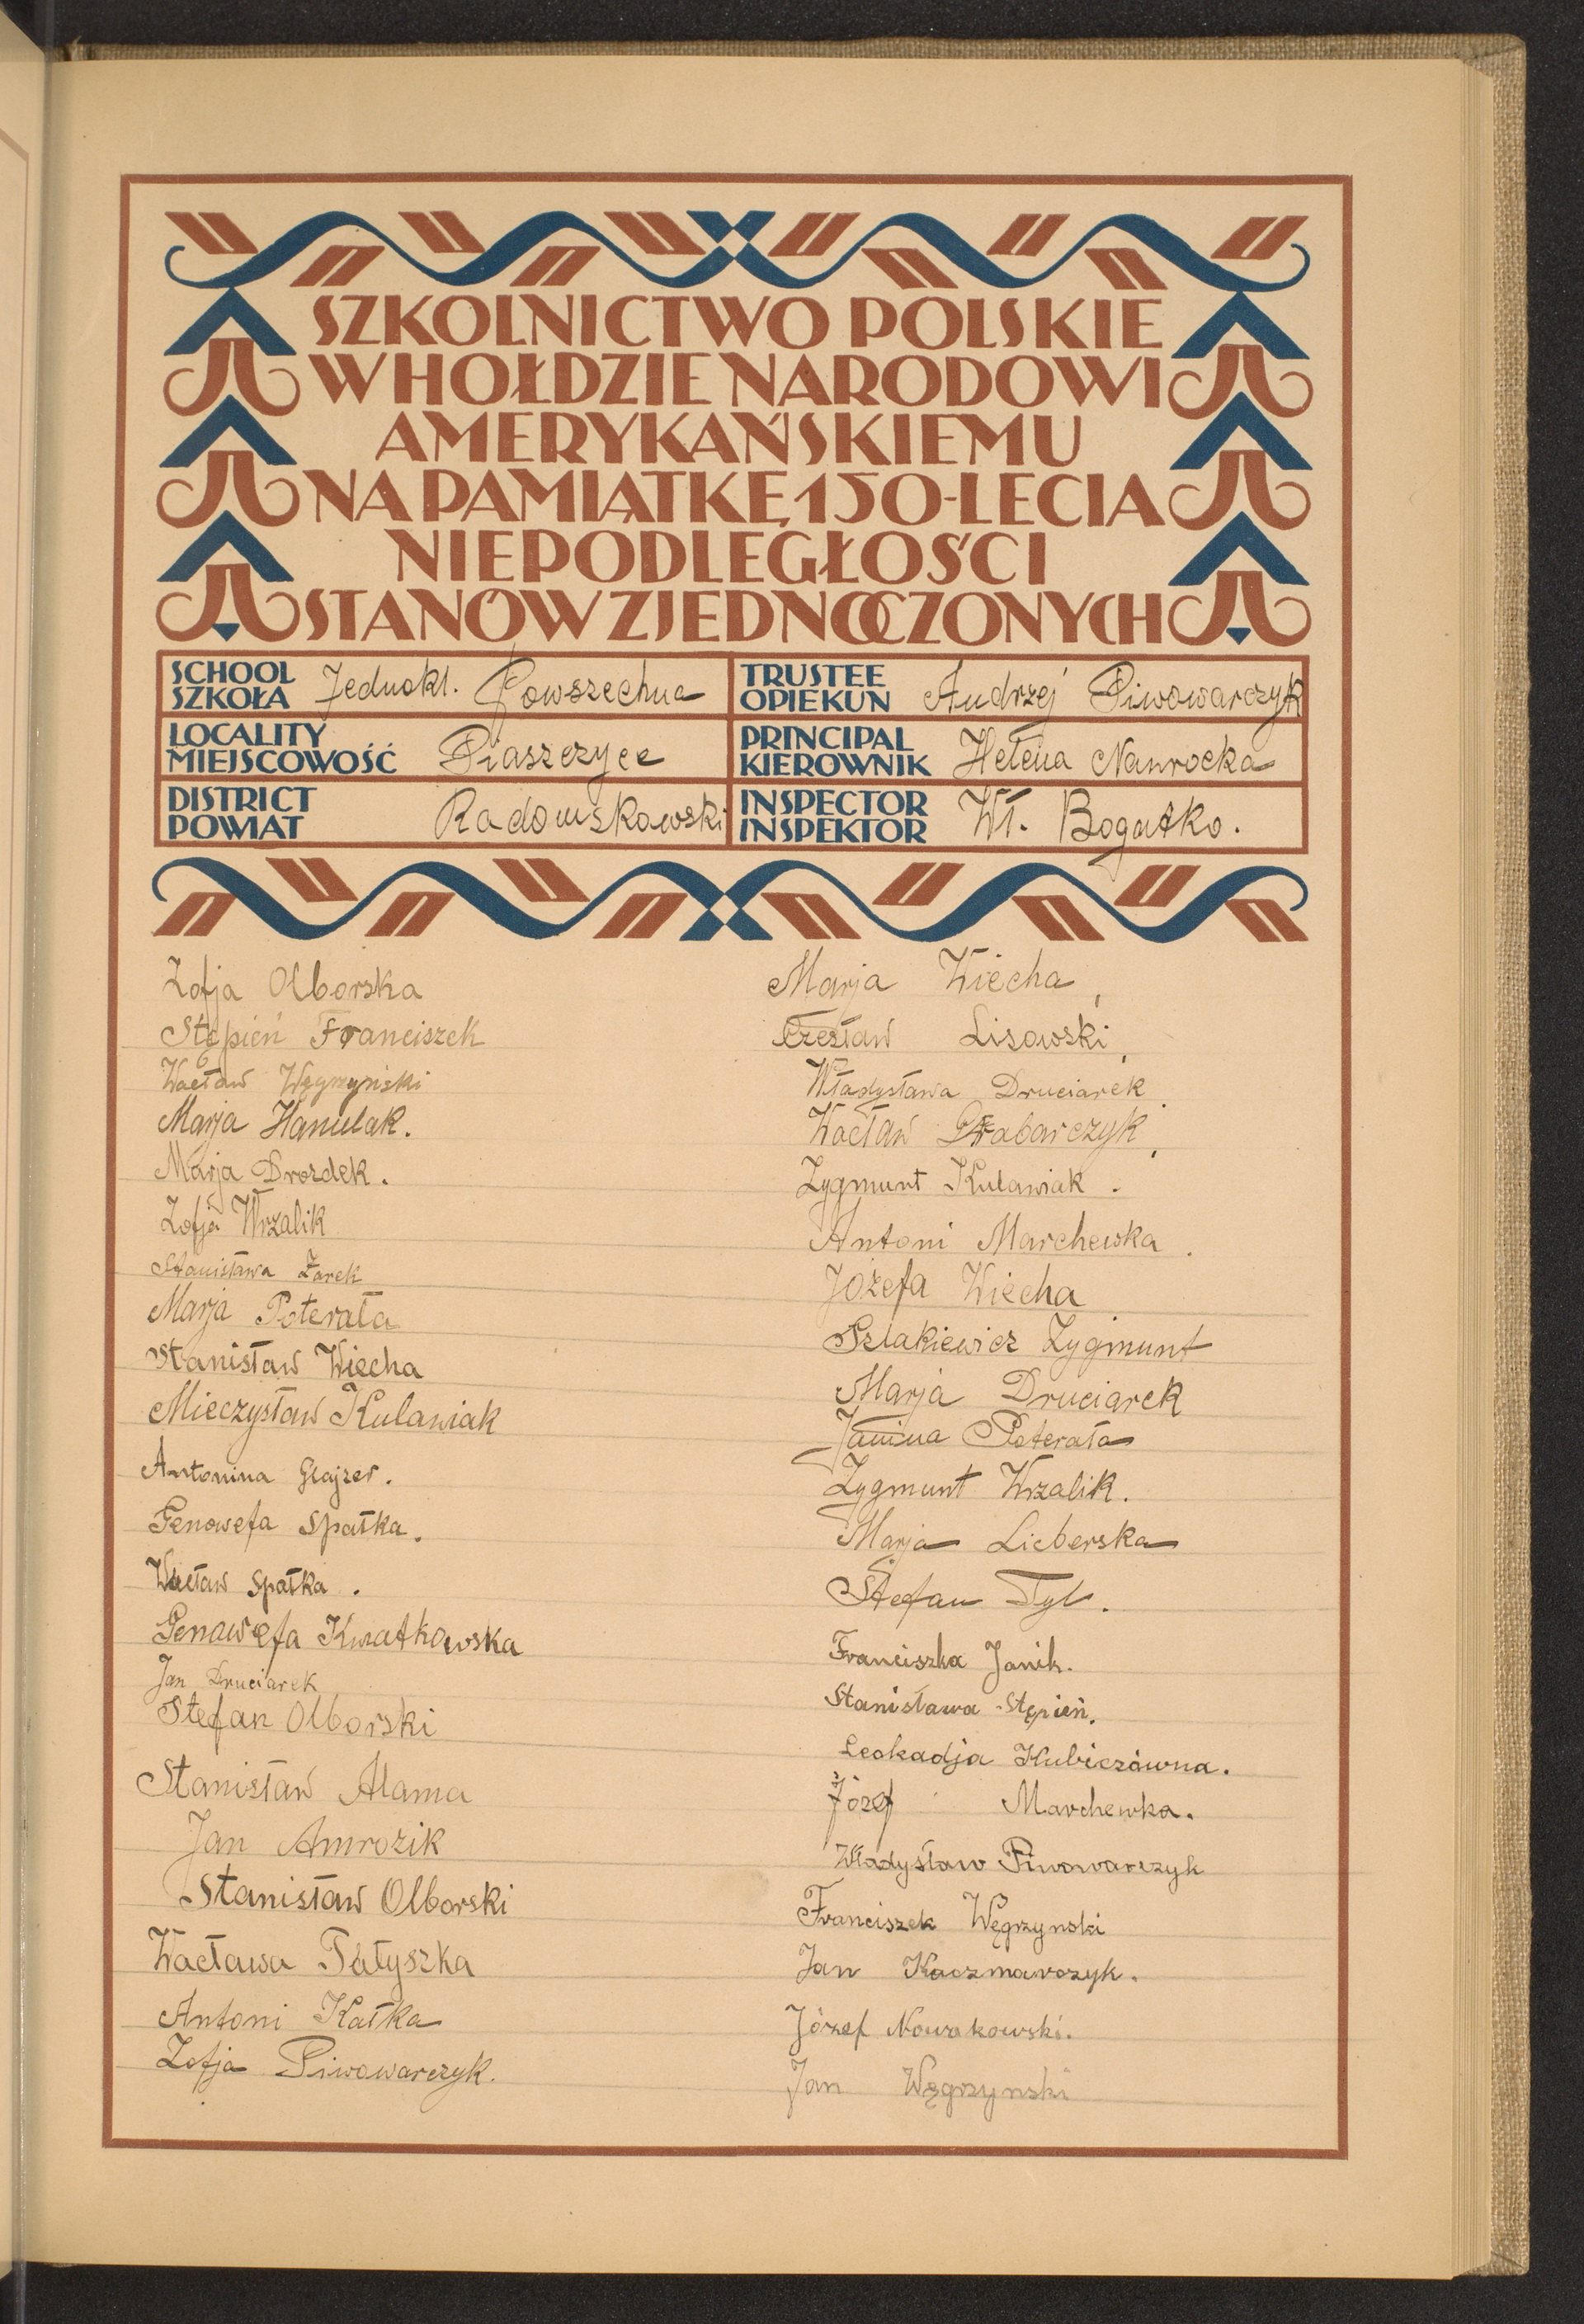 SZKOLNICTWO POLSKIE
W HOŁDZIE NARODOWI
AMERYKAŃSKIEMU
NA PAMIĄTKĘ 150-LECIA
NIEPODLEGŁOŚCI
STANÓW ZJEDNOCZONYCH
SCHOOL
SZKOŁA Jednokl. Powszechna
TRUSTEE
OPIEKUN Andrzej Piwowarczyk
LOCALITY
MIEJSCOWOŚĆ Piaszczyce
PRINCIPAL
KIEROWNIK Helena Nawrocka
DISTRICT
POWIAT Radomskowski
INSPECTOR
INSPEKTOR Wł. Bogatko.
Zofja Olborska
Stępień Franciszek
Wacław Węgrzyński
Marja Hanulak.
Marja Drozdek.
Zofja Wrzalik
Stanisława Żarek
Marja Poterała
Stanisław Wiecha
Mieczysław Kulawiak
Antonina Glajzer.
Genowefa Spałka.
Wacław Spałka.
Genawefa Kwiatkowska
Jan Druciarek
Stefan Olborski
Stanisław Alama
Jan Amrozik
Stanisław Olborski
Wacława Tałyszka
Antoni Kałka
Zofja Piwowarczyk.
Marja Wiecha,
Czesław Lisowski,
Władysława Druciarek.
Wacław Grabarczyk,
Zygmunt Kulawiak.
Antoni Marchewka.
Józefa Wiecha
Szlakiewicz Zygmunt
Marja Druciarek
Janina Poterała
Zygmunt Wrzalik.
Marja Lieberska
Stefan Tyl.
Franciszka Janik.
Stanisława Stępień.
Leokadja Kubiczówna.
Józef Marchewka.
Władysław Piwowarczyk
Franciszek Węgrzynski
Jan Kaczmarczyk.
Józef Nowakowski.
Jan Węgrzynski